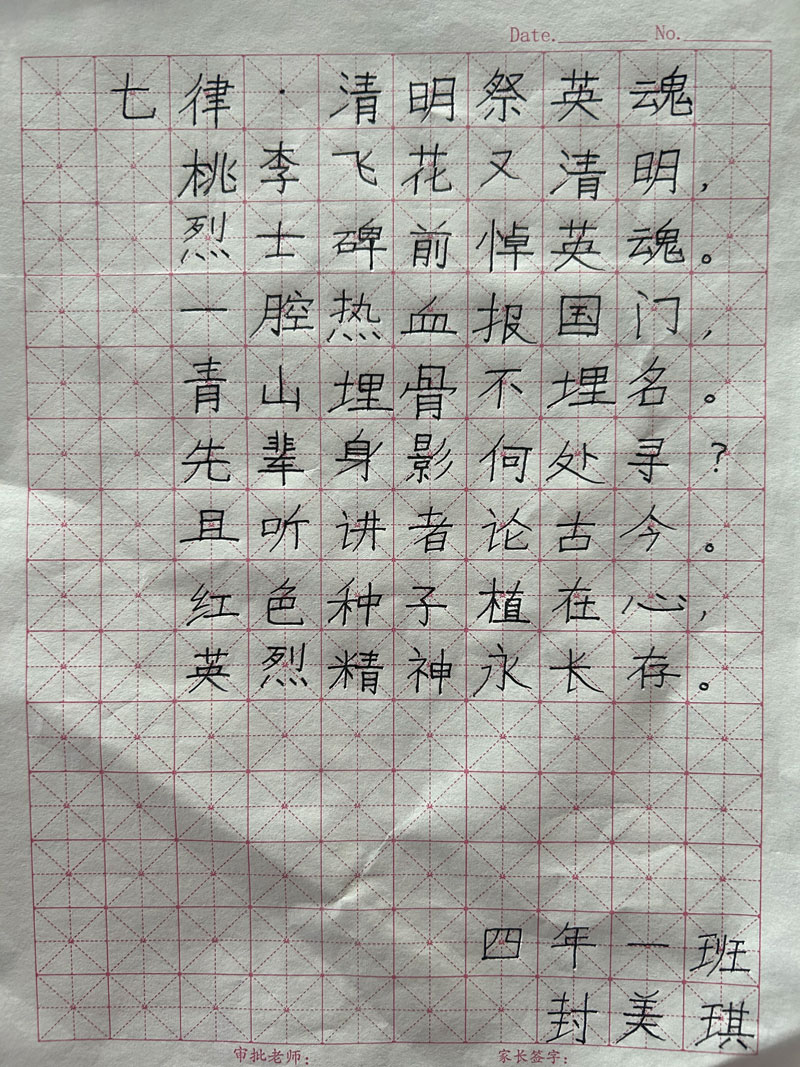 Date. No.
七律·清明祭英魂
桃李飞花又清明,
烈士碑前悼英魂。
一腔热血报国门,
青山埋骨不埋名。
先辈身影何处寻?
且听讲者论古今。
红色种子植在心,
英烈精神永长存。
四年一班
封美琪
审批老师: 家长签字: